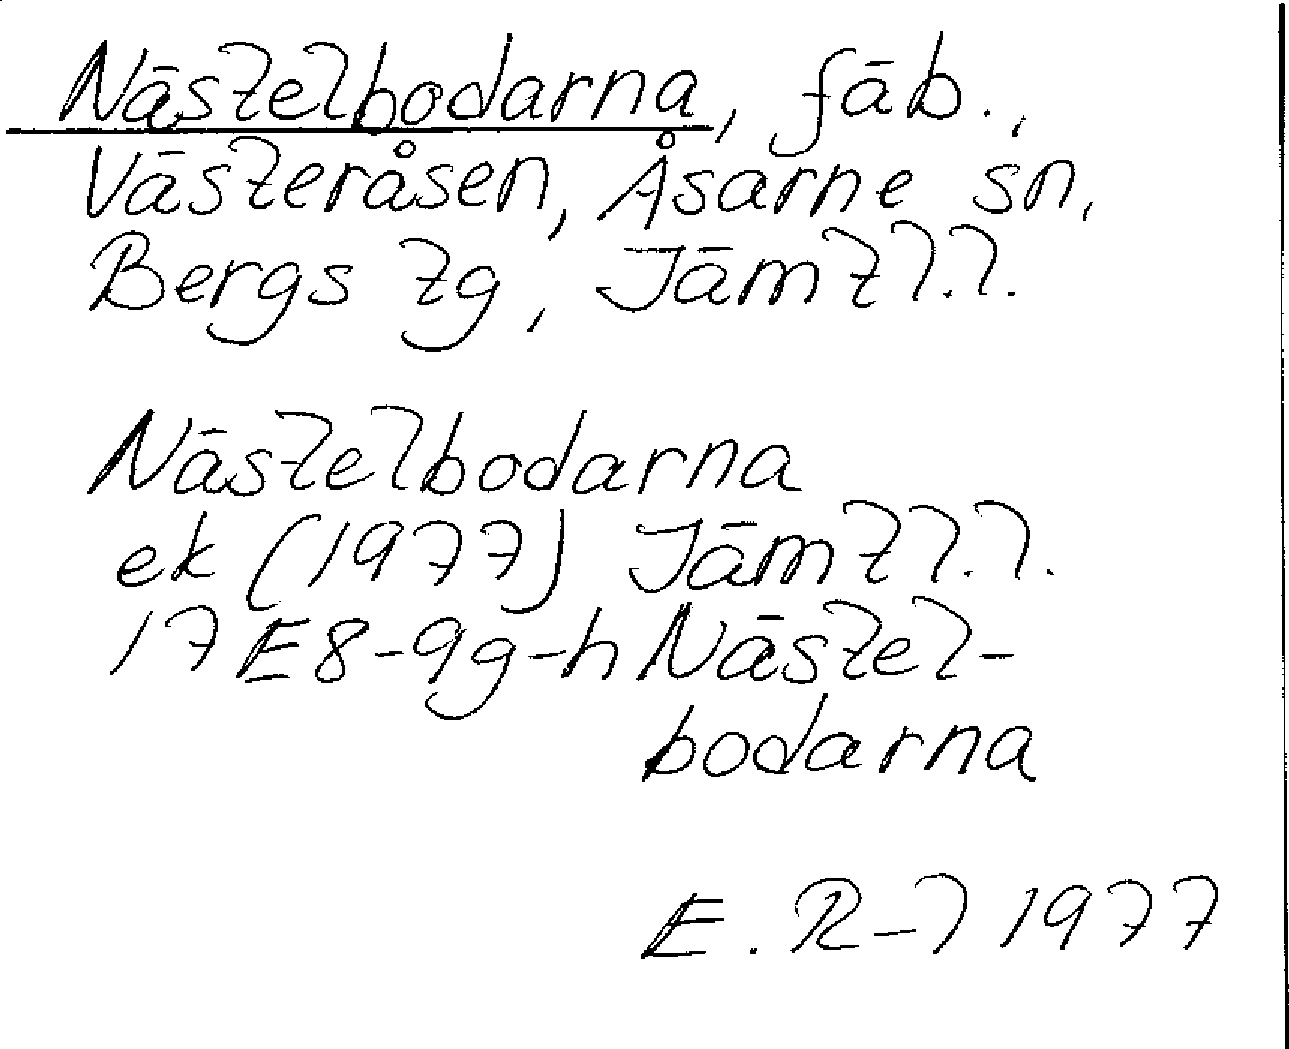 Nästelbodarna, fäb.,
Västeråsen, Åsarne sn,
Bergs tg, Jämtl.l.
Nästelbodarna
ek (1977) Jämtl.l.
17E8-9g-h Nästel-
bodarna
E. R-l 1977